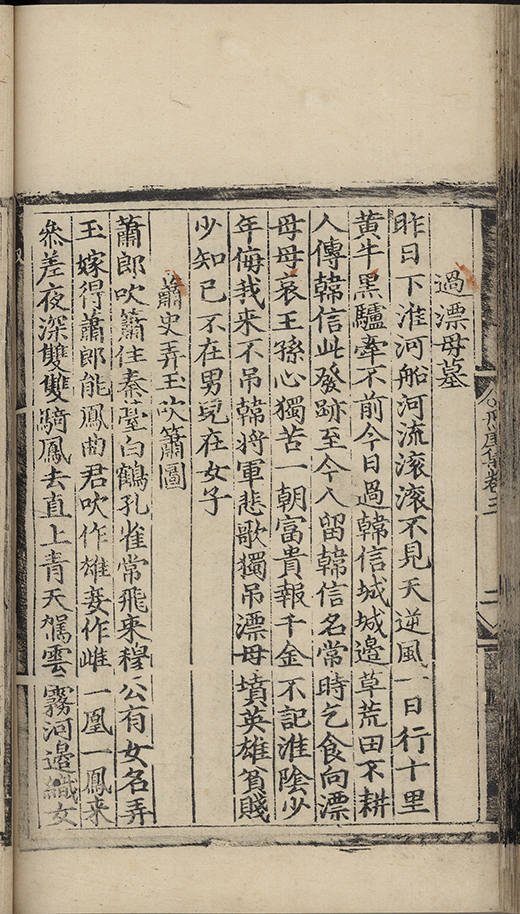 過漂母墓
昨日下淮河船河流滚滚不見天逆風一日行十里
黄牛黑驢牽不前今日過韓信城城邊草荒田不耕
人傳韓信此發跡至今人留韓信名常時乞食向漂
母母哀王孫心獨苦一朝富貴報千金不記淮陰少
年侮我来不吊韓將軍悲歌獨吊漂母墳英雄貧賤
少知已不在男兒在女子
蕭史弄玉吹簫圖
蕭郎吹簫住秦臺白鶴孔雀常飛来穆公有女名弄
玉嫁得蕭郎能鳳曲君吹作雄妾作雌一凰一鳳来
叅差夜深雙雙騎鳳去直上青天駕雲霧河邊織女
卷三